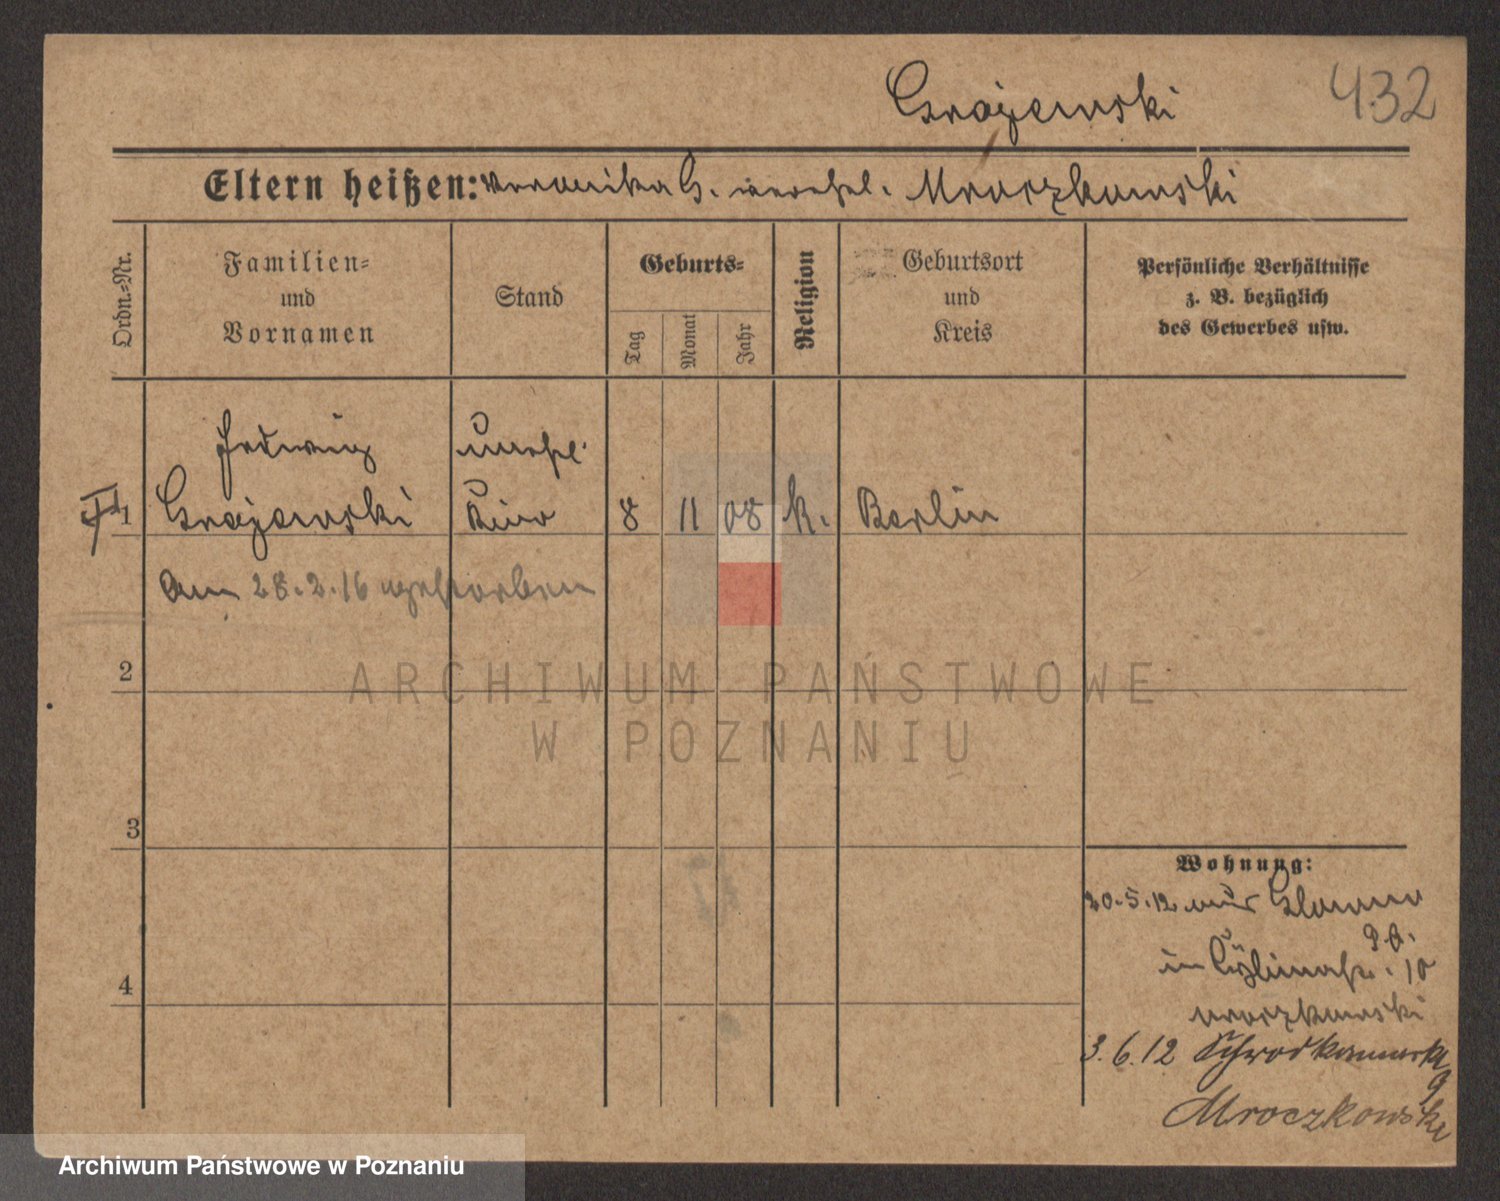 Grazewski 432
Eltern heißen: Veronika G. verehel. Mroczkowski
Ordn.-Nr.
Familien-
und
Vornamen
Stand
Geburts-
Tag
Monat
Jahr
Religion
Geburtsort
und
Kreis
Persönliche Verhältnisse
z. B. bezüglich
des Gewerbes usw.
Hedwig unehl.
1 Grazewski Kind 8 11 08 k. Berlin
am 28.2.16 gestorben
2
ARCHIWUM PAŃSTWOWE
W POZNANIU
3
Wohnung:
20.5.12 aus
in 10
Mroczkowski
4
3.6.12 Schrodkamarkt
9
Mroczkowski
Archiwum Państwowe w Poznaniu